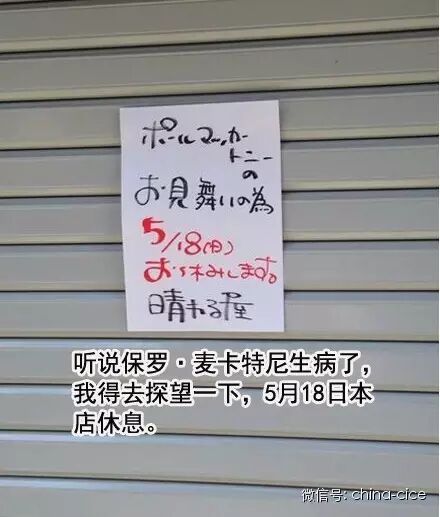 ポールマッカー
トニーの
お見舞いの為
5/18(日)
お休みします。
晴れる屋
听说保罗·麦卡特尼生病了，
我得去探望一下，5月18日本
店休息。
微信号: china-cice